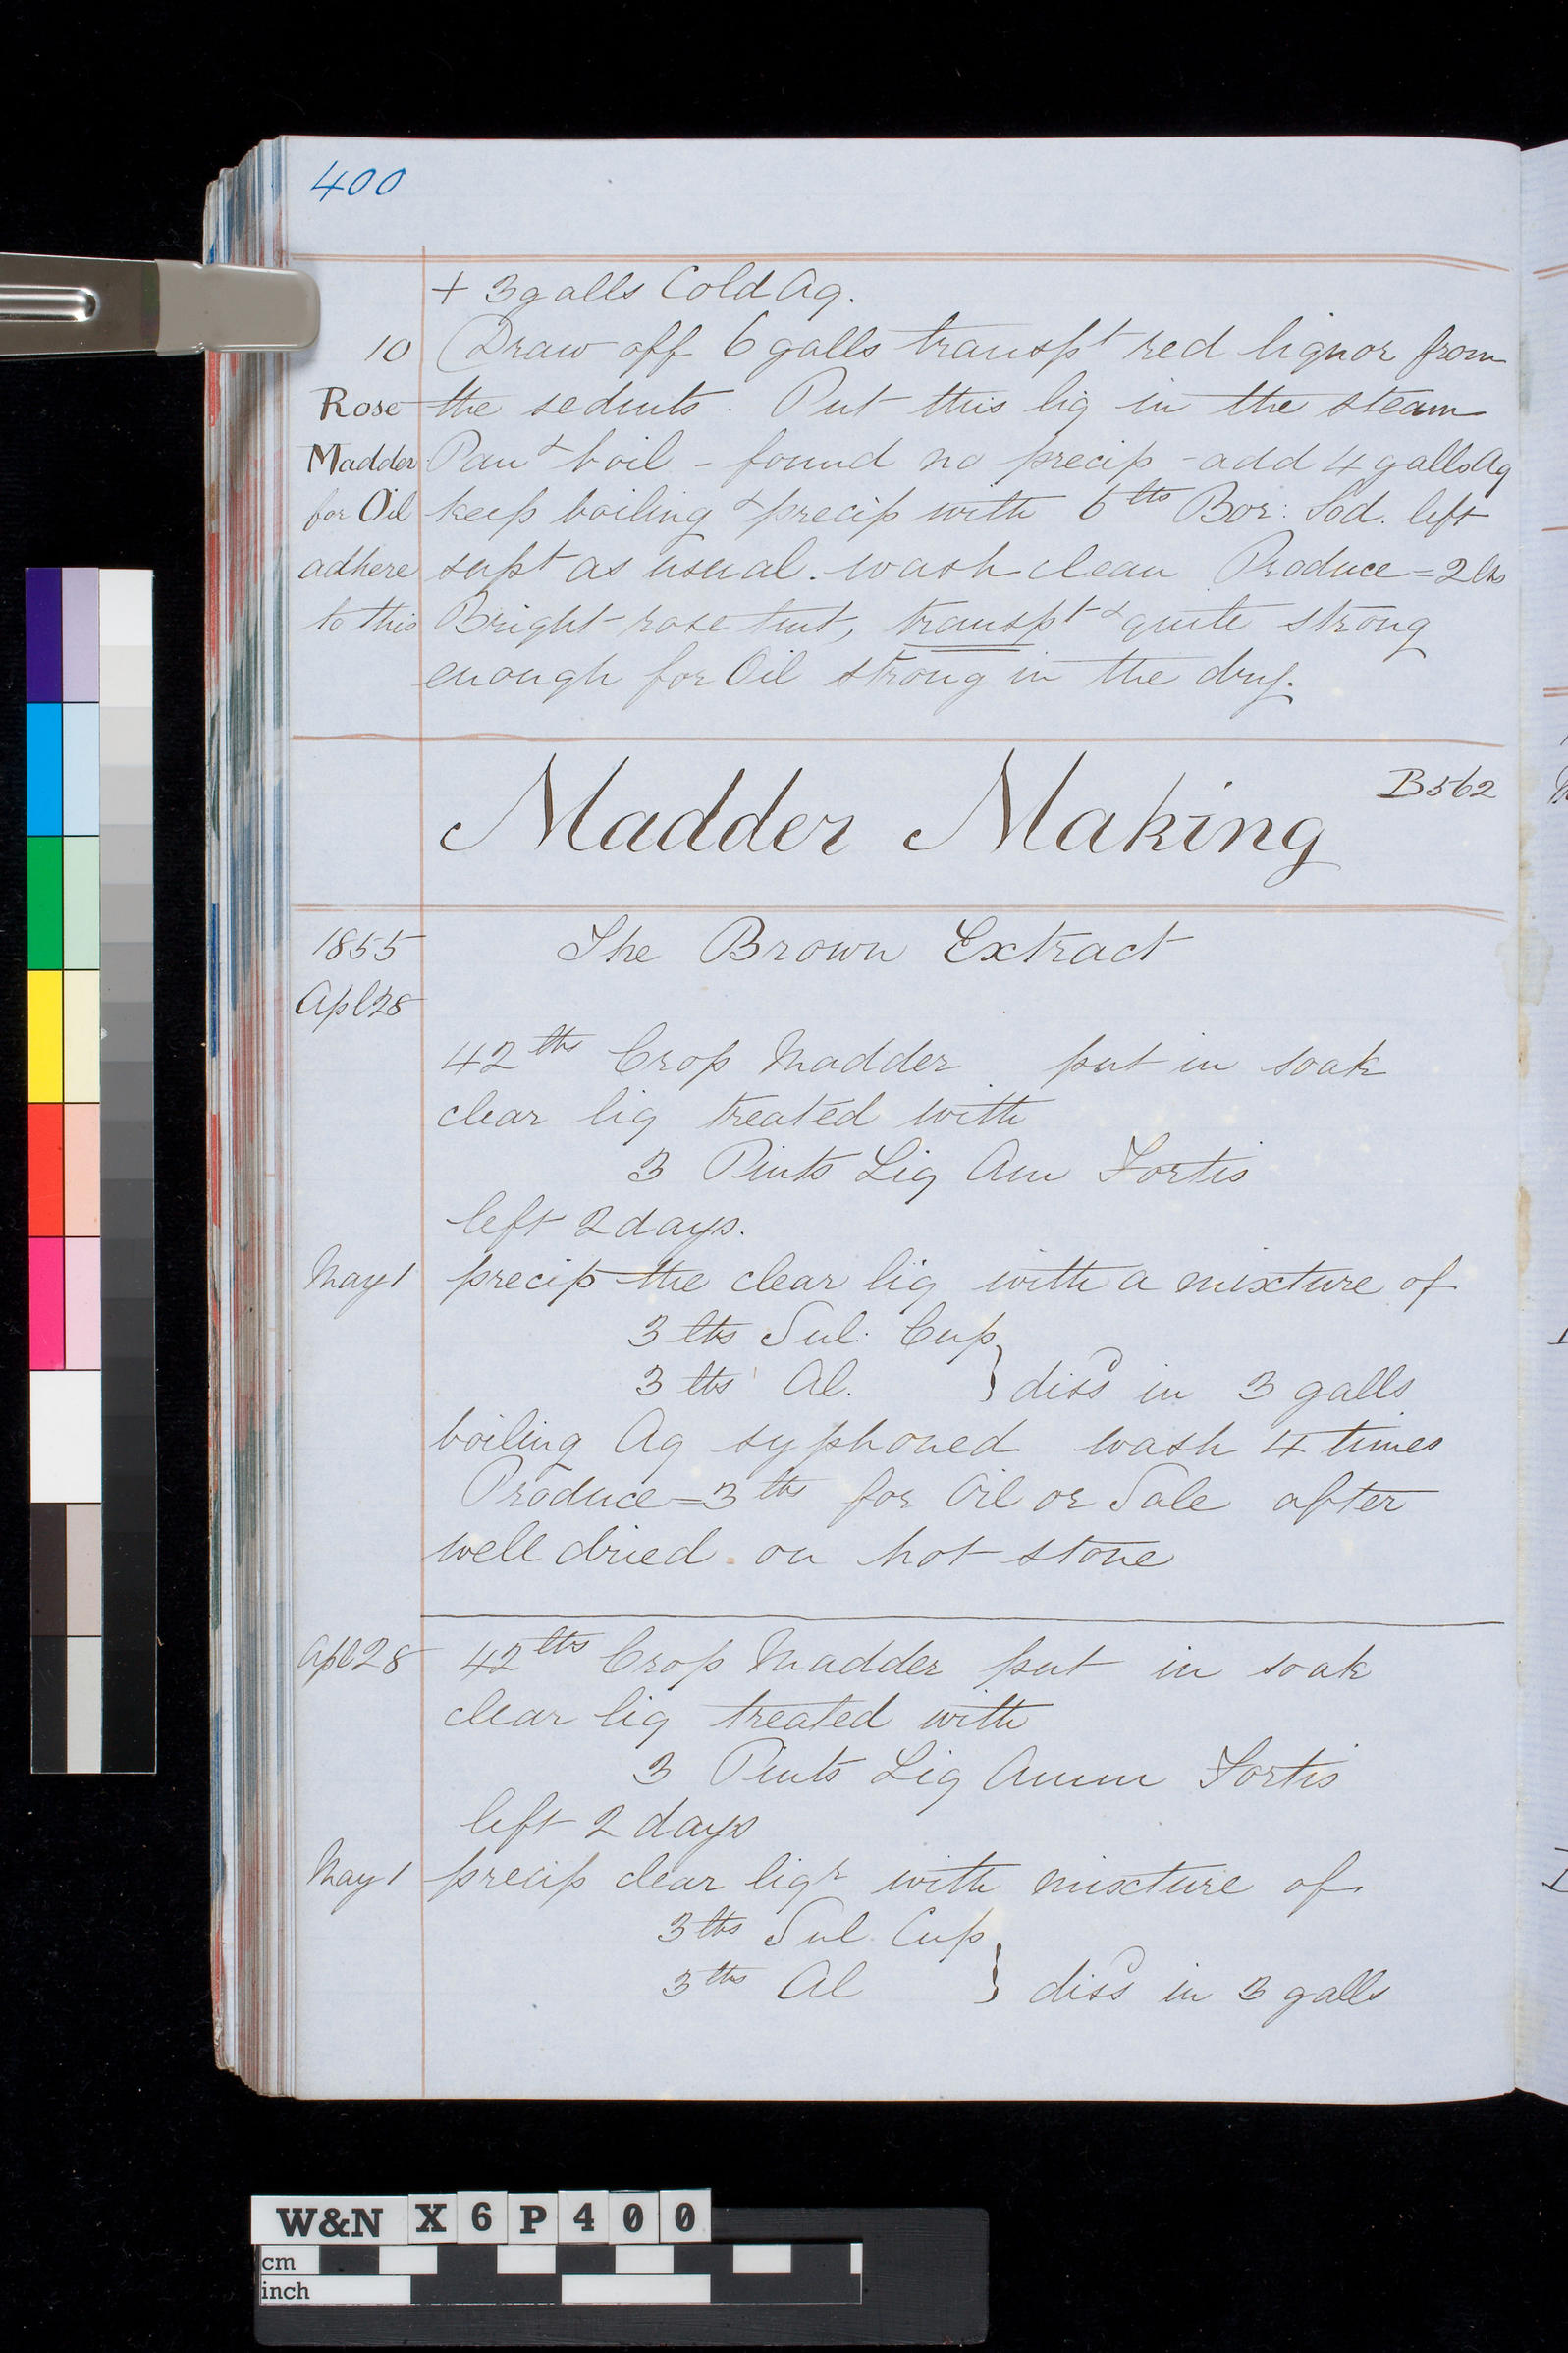 400
+ 3 galls Cold Aq.
10 Draw off 6 galls transpt red liquor from
Rose the sedmts. Put this liq in the steam
Madder Pan & boil - found no precip - add 4 galls Aq
for Oil keep boiling & precip with 6 lbs Bor: Sod. left
adhere supt as usual. wash clean Produce = 2 lbs
to this Bright rose tint, transpt & quite strong
enough for Oil strong in the dry.
B562
Madder Making
1855 The Brown Extract
Apl 28
42 lbs Crop Madder put in soak
clear liq treated with
3 Pints Liq Am Fortis
left 2 days.
May 1 precip the clear liq with a mixture of
3 lbs Sul: Cup
3 lbs Al. } dissd in 3 galls
boiling Aq syphoned wash 4 times
Produce = 3 lbs for Oil or Sale after
well dried on hot stone
Apl 28 42 lbs Crop Madder put in soak
clear liq treated with
3 Pints Liq Amm Fortis
left 2 days
May 1 precip clear liqr with mixture of
3 lbs Sul. Cup
3 lbs Al } dissd in 3 galls
W&N X6P400
cm
inch